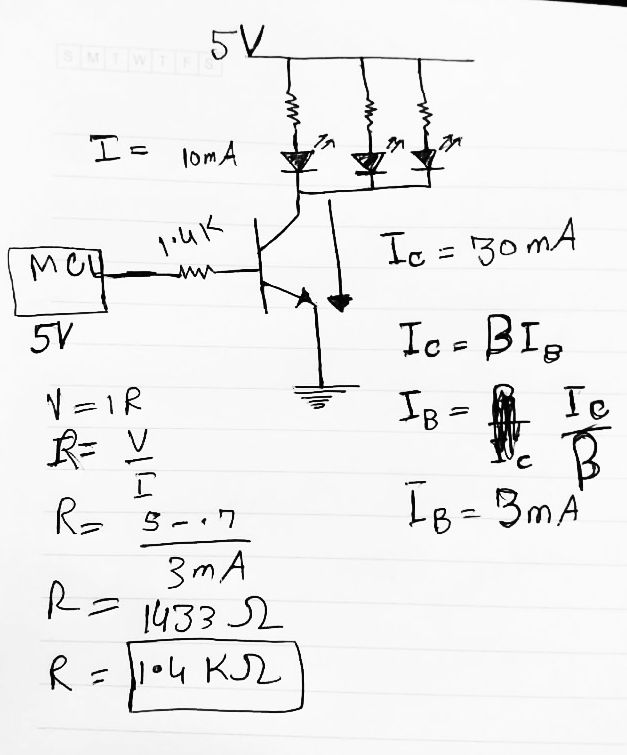 5V
S M T W T F S
I = 10mA
1.4K
MCU
5V
Ic = 30mA
Ic = βIB
IB = Ic/β
IB = 3mA
V = IR
R = V/I
R = 5-.7/3mA
R = 1433 Ω
R = 1.4 KΩ